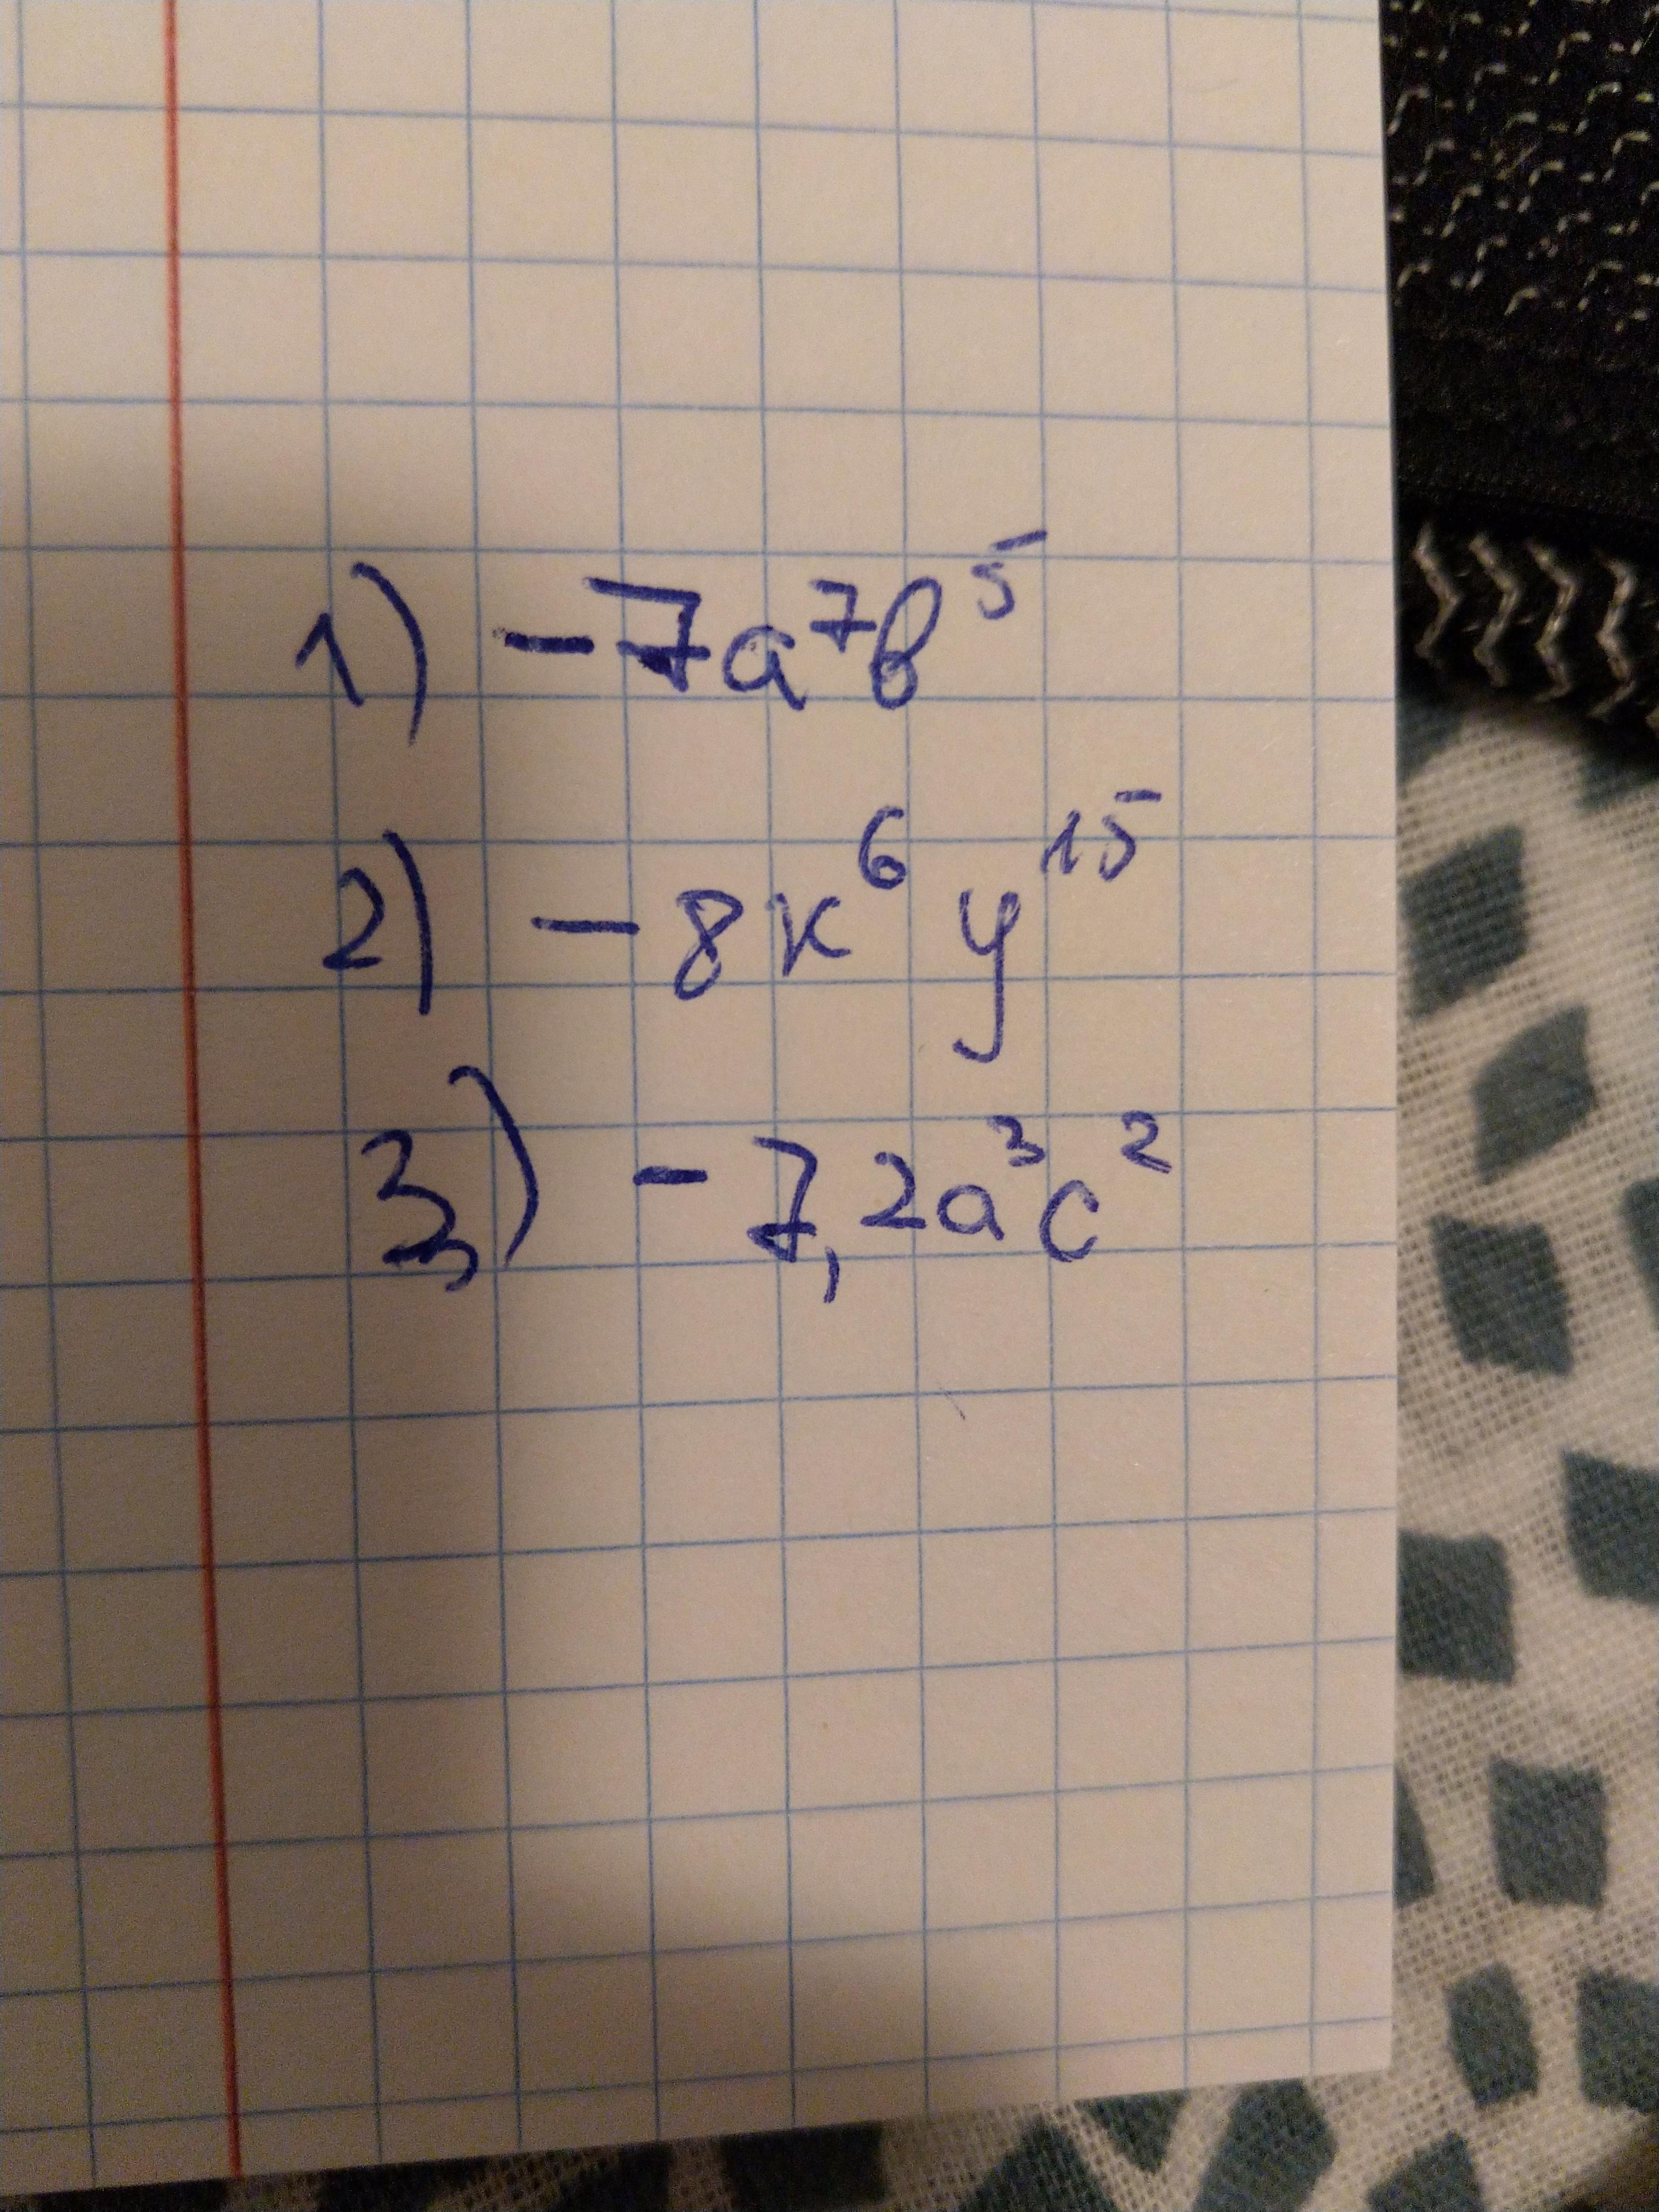 1) -7a⁷b⁵
2) -8x⁶y¹⁵
3) -7,2a³c²